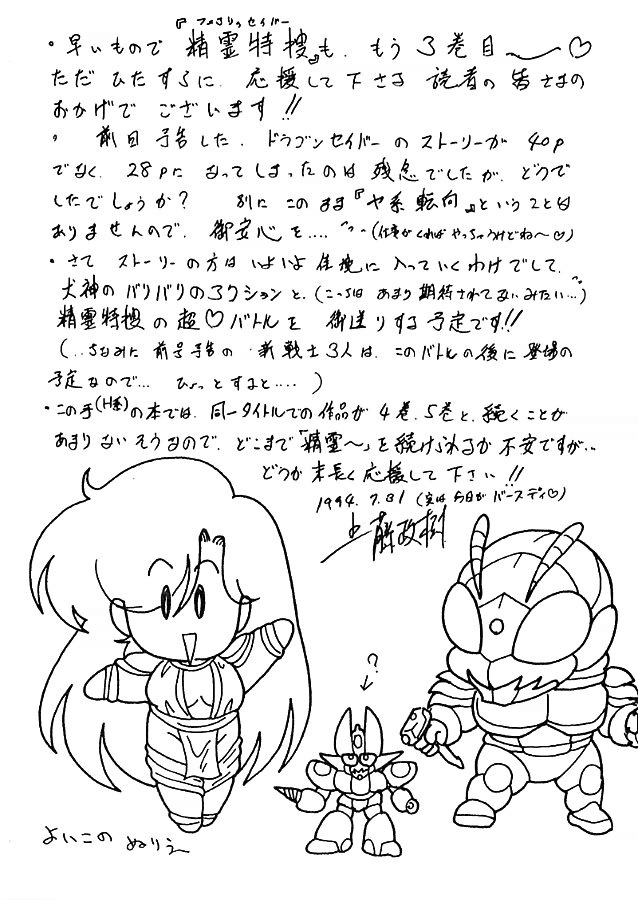 『フェアリィセイバー
・早いもので 精霊特捜』も、もう 3巻目〜♡
ただ ひたすらに、応援して下さる 読者の皆さまの
おかげで ございます!!
・ 前回予告した、ドラゴンセイバーのストーリーが 40p
でなく、28pに なってしまったのは 残念でしたが、どうで
したでしょうか? 別に このまま『ヤ系転向』ということは
ありませんので、御安心を‥‥ (仕事がくればやっちゃうけどね〜♡)
・さて ストーリーの方は いよいよ 佳境に 入っていくわけでして、
犬神のバリバリのアクションと、(こっちは あまり期待されてないみたい…)
精霊特捜の超♡バトルを 御送りする予定です!!
(‥ちなみに 前号予告の 新戦士3人は、このバトルの後に登場の
予定なので… ひょっとすると‥‥ )
・この手(H系)の本では、同一タイトルでの作品が 4巻、5巻と、続くことが
あまり ないそうなので、どこまで「精霊〜」を続けられるか 不安ですが‥
どうか 末長く応援して下さい!!
1994.7.31 (実は今日がバースディ♡)
藤政樹
?
よいこの ぬりえ